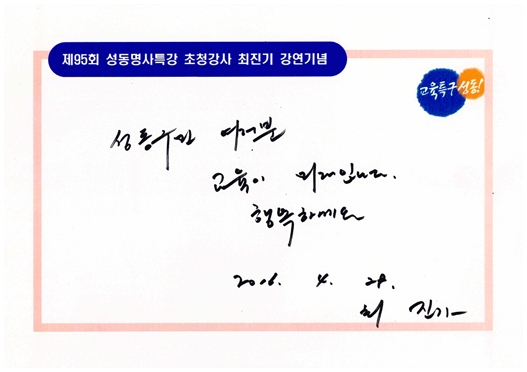 제95회 성동명사특강 초청강사 최진기 강연기념
교육특구 성동!
성동구민 여러분
교육이 미래입니다.
행복하세요
2016. 4. 28.
최 진기